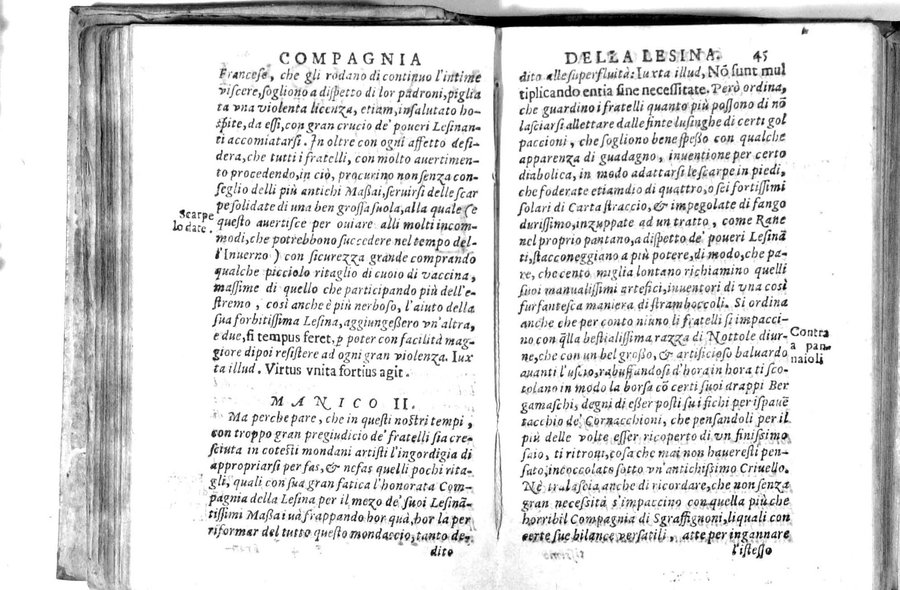 COMPAGNIA
Francese, che gli rodano di continuo l'intime
viscere, sogliono a dispetto di lor padroni, piglia
ta vna violenta licenza, etiam, insalutato ho-
spite, da essi, con gran crucio de' poueri Lesinan-
ti accomiatarsi. In oltre con ogni affetto desi-
dera, che tutti i fratelli, con molto auertimen-
to procedendo, in ciò, procurino non senza con-
seglio delli più antichi Maßai, seruirsi delle scar
pe solidate di una ben grossa suola, alla quale (e
questo auertisce per ouiare alli molti incom-
modi, che potrebbono succedere nel tempo del-
l'Inuerno) con sicurezza grande comprando
qualche picciolo ritaglio di cuoio di vaccina,
massime di quello che participando più dell'e-
stremo, così anche è più nerboso, l'aiuto della
sua forbitissima Lesina, aggiungeßero vn'altra,
e due, si tempus feret, p poter con facilità mag-
giore dipoi resistere ad ogni gran violenza. Iux
ta illud. Virtus vnita fortius agit.
Scarpe
so date.
MANICO II.
Ma perche pare, che in questi nostri tempi,
con troppo gran pregiudicio de' fratelli sia cre-
sciuta in cotesti mondani artisti l'ingordigia di
appropriarsi per fas, & nefas quelli pochi rita-
gli, quali con sua gran fatica l'honorata Com-
pagnia della Lesina per il mezo de' suoi Lesinā-
tissimi Maßai uà frappando hor quà, hor la per
riformar del tutto questo mondaccio, tanto de-
dito
DELLA LESINA. 45
dito alle superfluità: Iuxta illud, Nō sunt mul
tiplicando entia sine necessitate. Però ordina,
che guardino i fratelli quanto più possono di nō
lasciarsi allettare dalle finte lusinghe di certi gol
paccioni, che sogliono benespeßo con qualche
apparenza di guadagno, inuentione per certo
diabolica, in modo adattarsi le scarpe in piedi,
che foderate etiamdio di quattro, o sei fortissimi
solari di Carta straccio, & impegolate di fango
durissimo, inzuppate ad un tratto, come Rane
nel proprio pantano, a dispetto de' poueri Lesinā
ti, stacconeggiano a più potere, di modo, che pa-
re, che cento miglia lontano richiamino quelli
suoi manualissimi artefici, inuentori di vna così
furfantesca maniera di stramboccoli. Si ordina
anche che per conto niuno li fratelli si impacci-
no con qlla bestialissima razza di Nottole diur-
ne, che con un bel großo, & artificioso baluardo
auanti l'uscio, rabuffandosi d'hora in hora ti sco-
tolano in modo la borsa cō certi suoi drappi Ber
gamaschi, degni di eßer posti su i fichi per ispauē
tacchio de' Cornacchioni, che pensandoli per il
più delle volte esser ricoperto di vn finissimo
saio, ti ritroui, cosa che mai non haueresti pen-
sato, incoccolato sotto vn'antichissimo Criuello.
Nè tralascia anche di ricordare, che non senza
gran necessità s'impaccino con quella più che
horribil Compagnia di Sgraffignoni, li quali con
certe sue bilance versatili, atte per ingannare
l'istesso
Contra
a pan
naioli